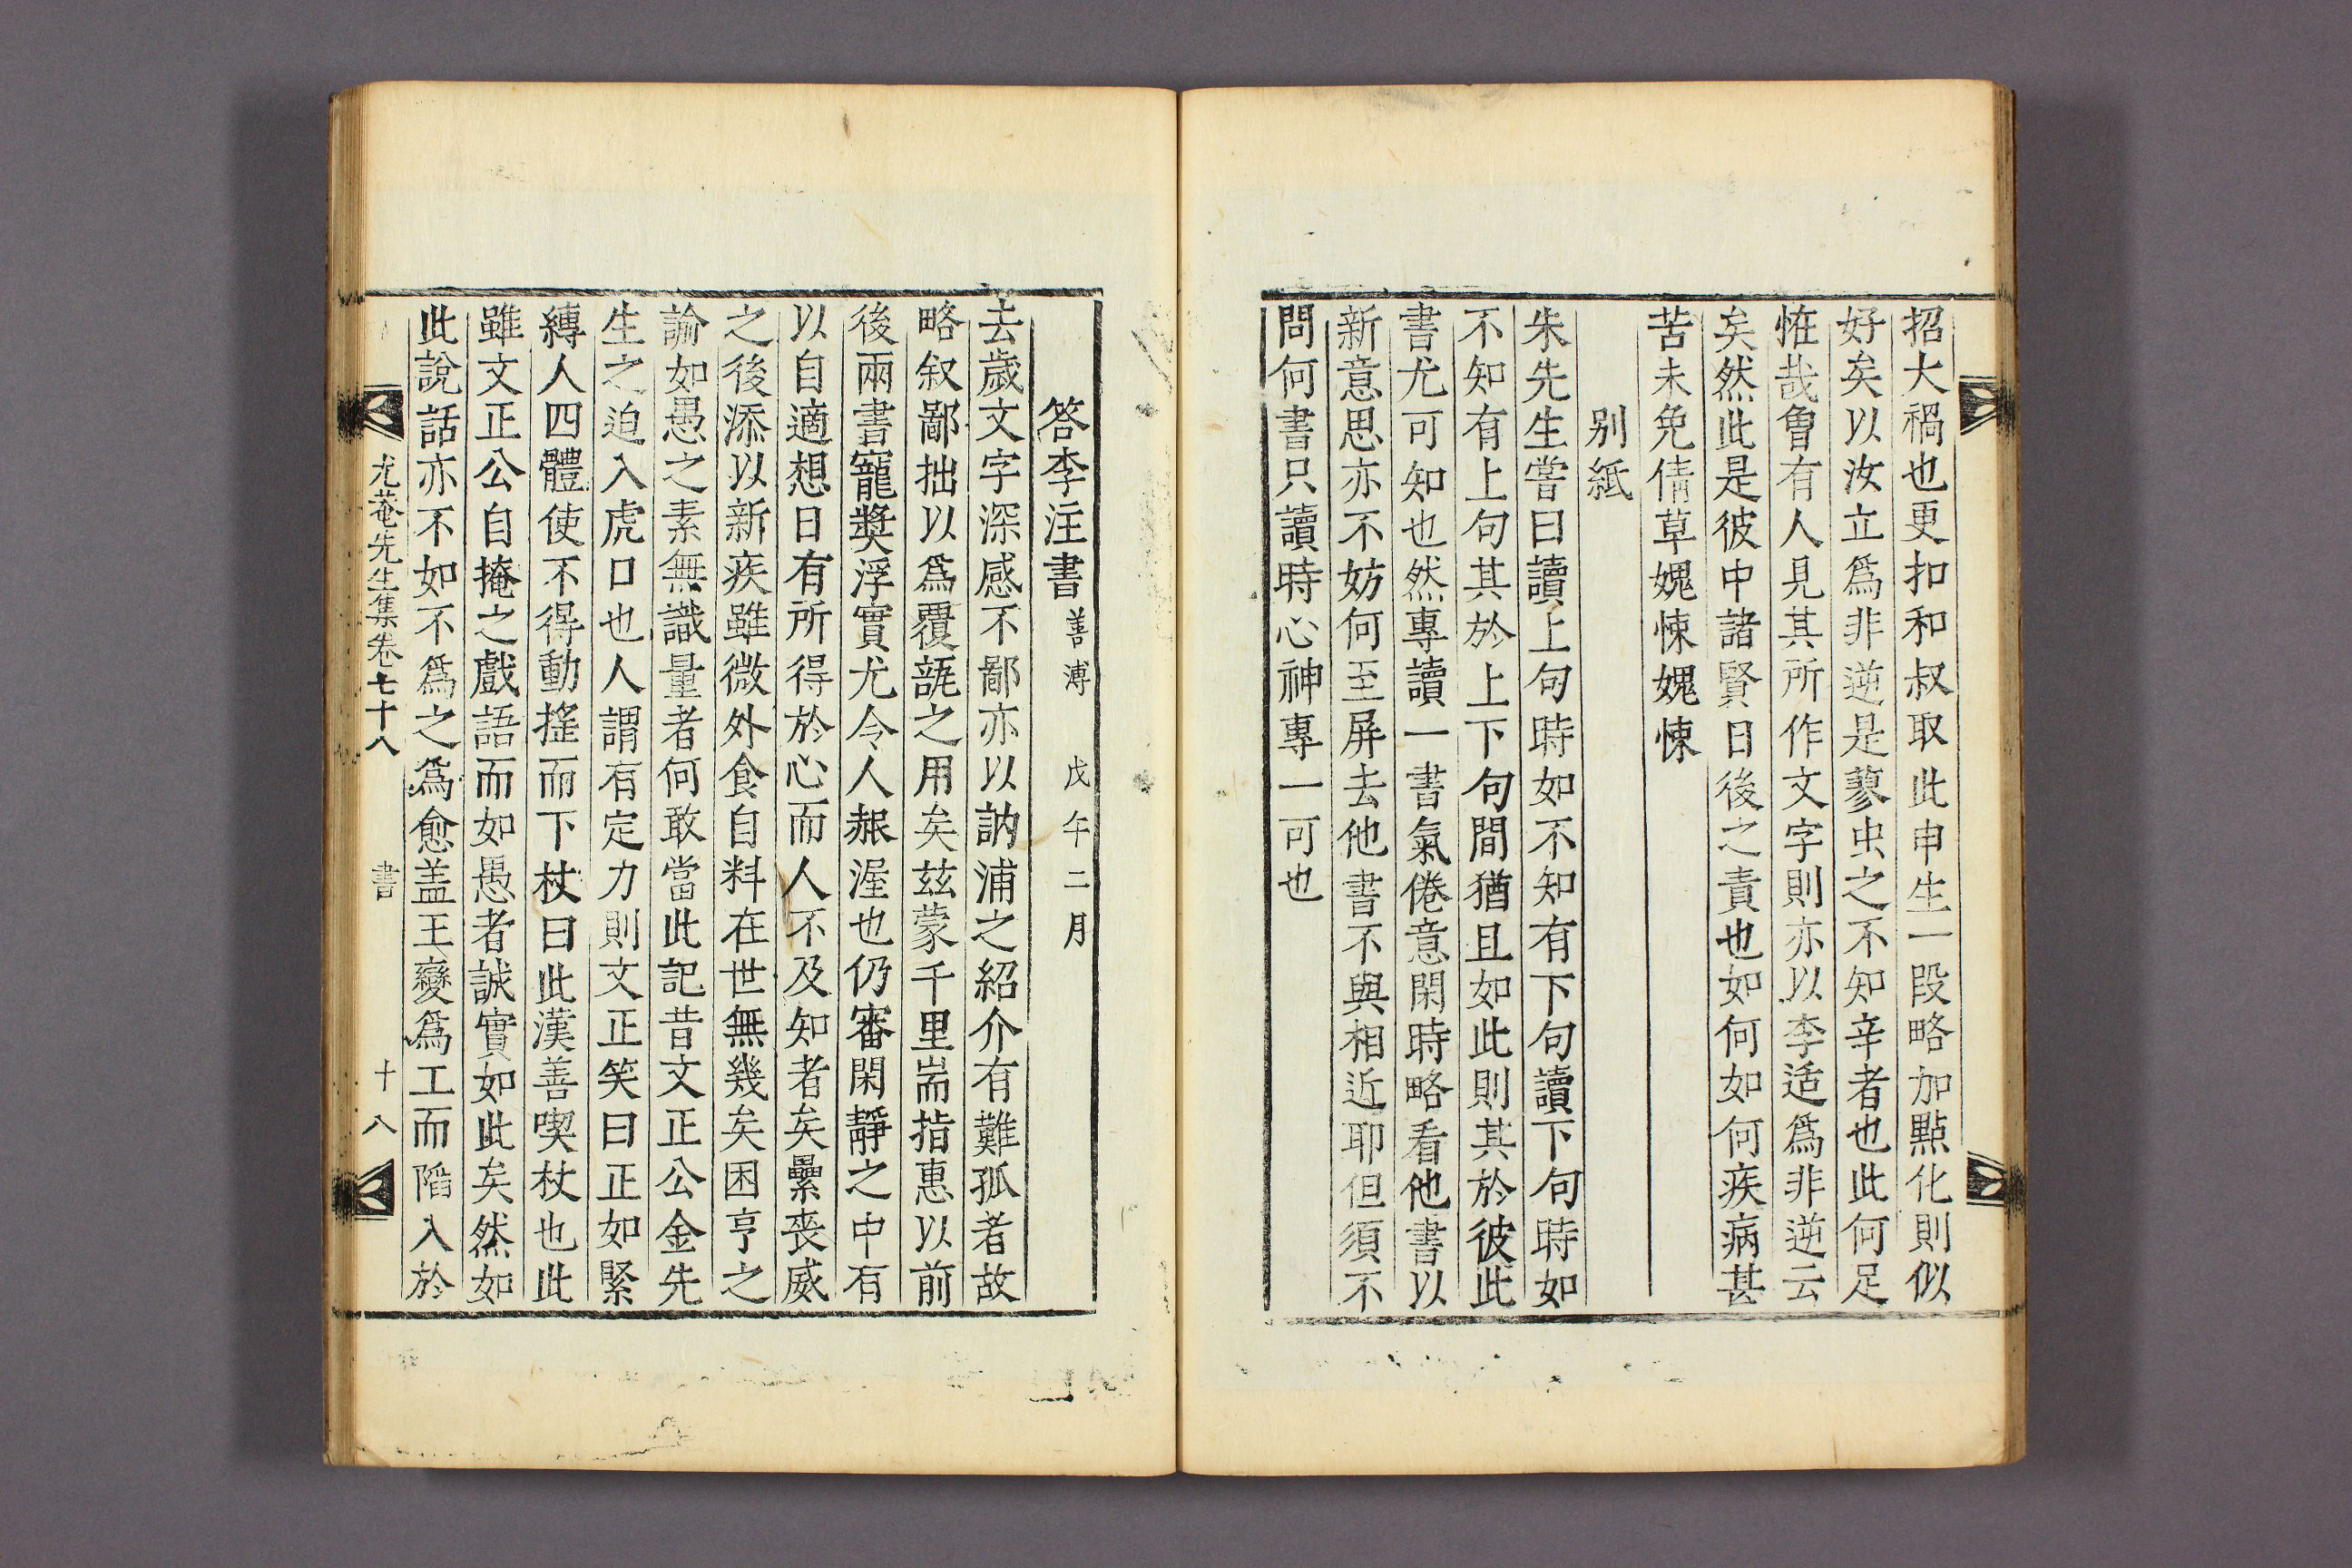 招大禍也更扣和叔取此申生一段略加點化則似
好矣以汝立爲非逆是蓼虫之不知辛者也此何足
恠哉曾有人見其所作文字則亦以李适爲非逆云
矣然此是彼中諸賢日後之責也如何如何疾病甚
苦未免倩草媿悚媿悚
別紙
朱先生嘗曰讀上句時如不知有下句讀下句時如
不知有上句其於上下句間猶且如此則其於彼此
書尤可知也然專讀一書氣倦意閑時略看他書以
新意思亦不妨何至屏去他書不與相近耶但須不
問何書只讀時心神專一可也
答李注書 善溥 戊午二月
去歲文字深感不鄙亦以訥浦之紹介有難孤者故
略叙鄙拙以爲覆瓿之用矣玆蒙千里耑指惠以前
後兩書寵奬浮實尤令人赧渥也仍審閑靜之中有
以自適想日有所得於心而人不及知者矣纍喪威
之後添以新疾雖微外食自料在世無幾矣困亨之
諭如愚之素無識量者何敢當此記昔文正公金先
生之迫入虎口也人謂有定力則文正笑曰正如緊
縛人四體使不得動搖而下杖曰此漢善喫杖也此
雖文正公自掩之戲語而如愚者誠實如此矣然如
此說話亦不如不爲之爲愈盖王變爲工而陷入於
尤菴先生集卷七十八 書 十八